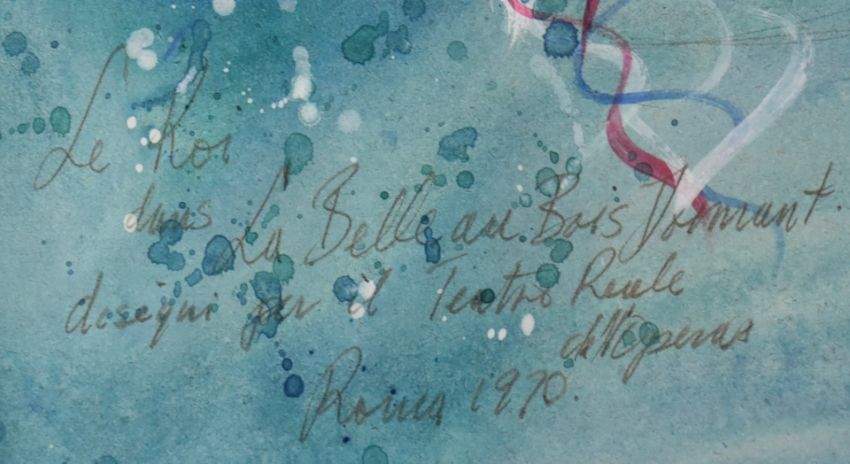 Le Roi
dans La Belle au Bois Dormant.
disegni per il Teatro Reale
dell'Operas
Roma 1970.